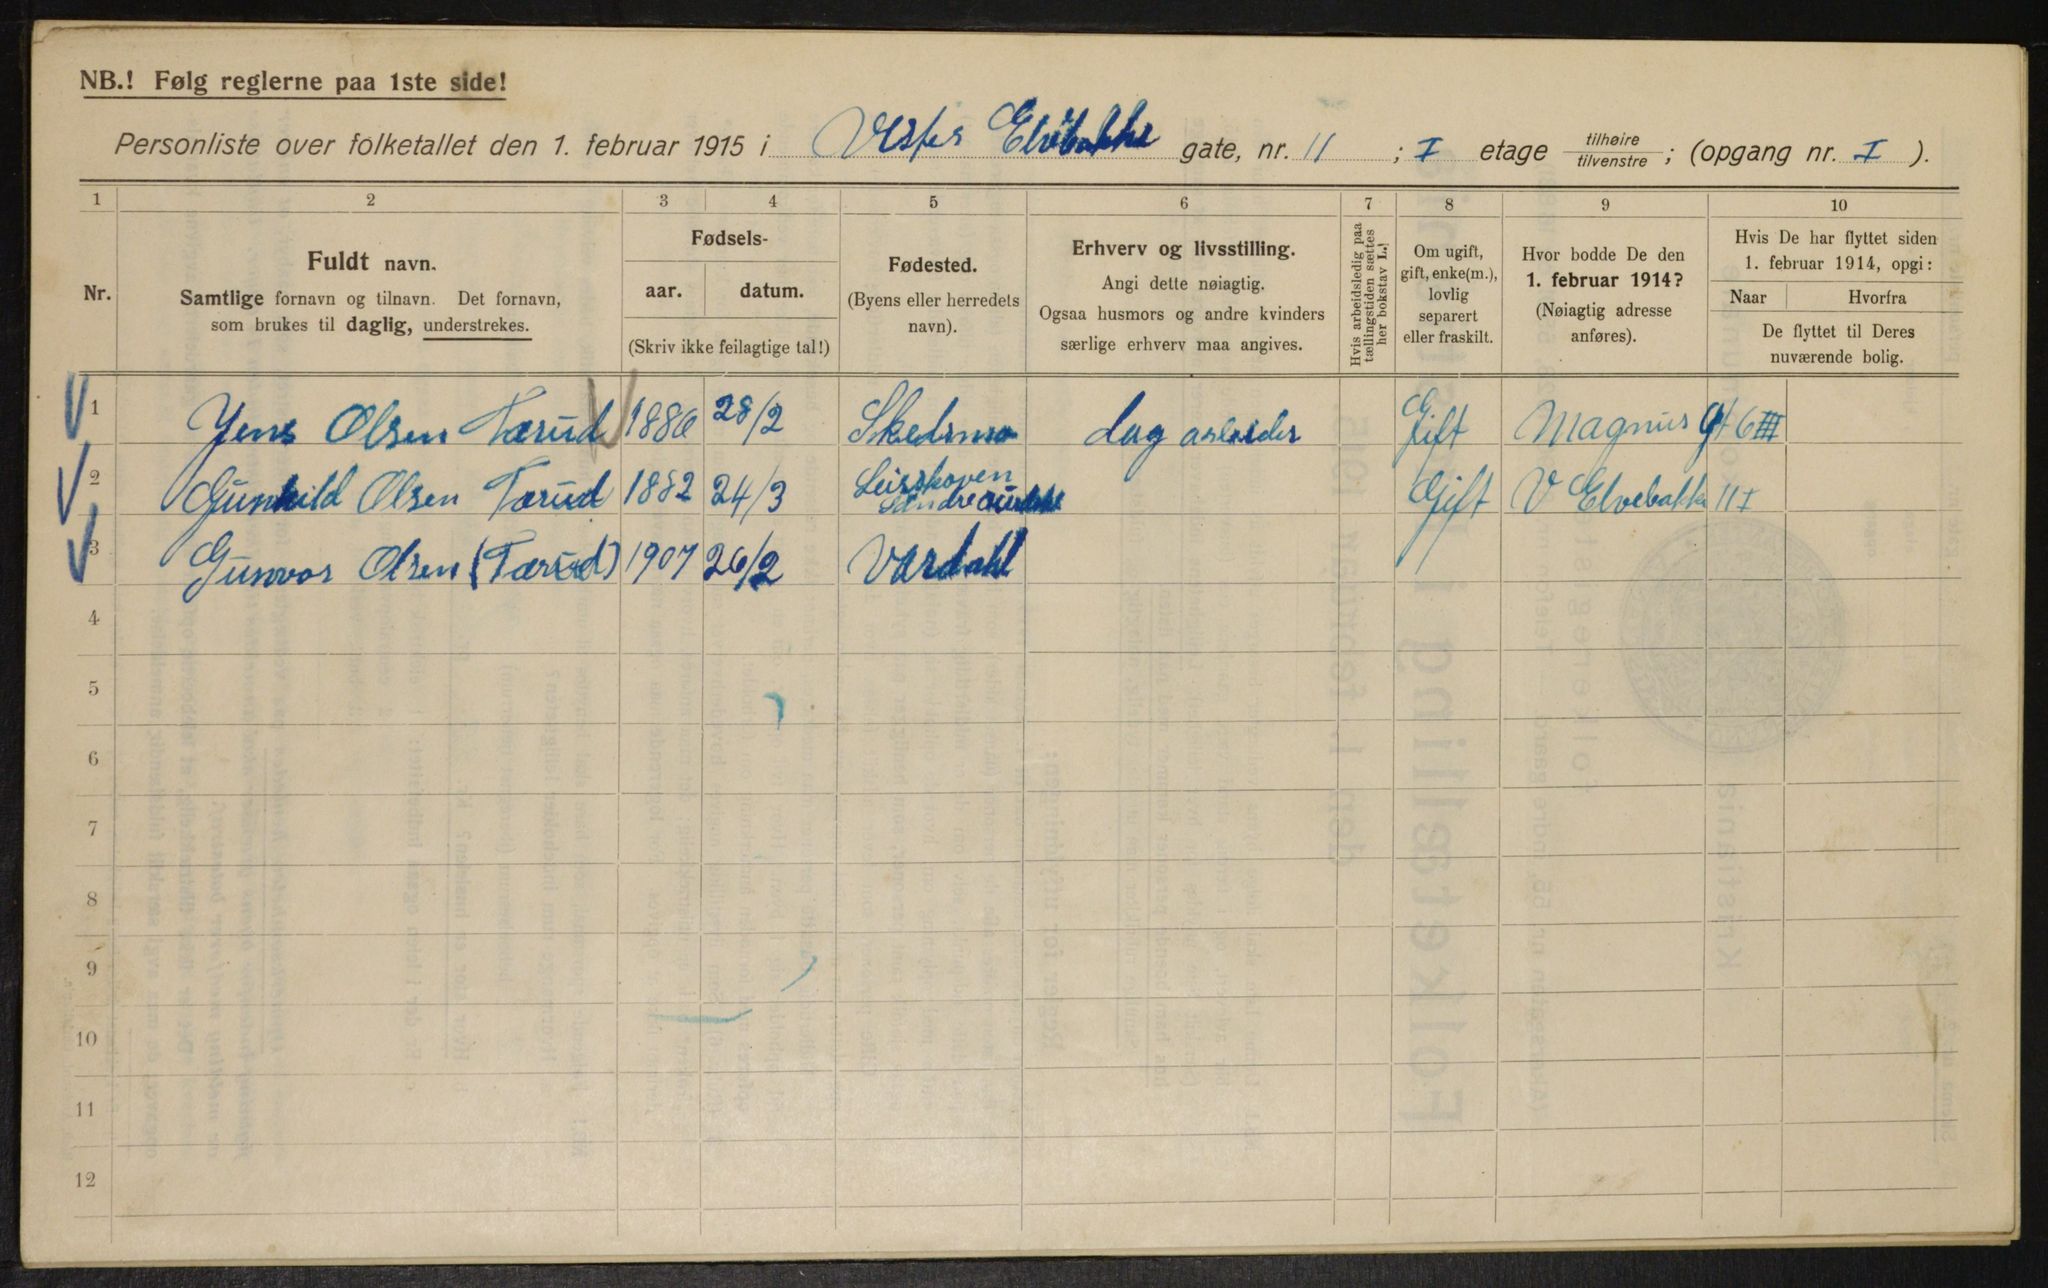 NB.! Følg reglerne paa 1ste side!
Personliste over folketallet den 1. februar 1915 i Vester Elvebakke gate, nr. 11 ; I etage tilhøire / tilvenstre ; (opgang nr. I ).
1 2 3 4 5 6 7 8 9 10
Nr.
Fuldt navn.
Samtlige fornavn og tilnavn. Det fornavn,
som brukes til daglig, understrekes.
Fødsels-
aar. datum.
(Skriv ikke feilagtige tal!)
Fødested.
(Byens eller herredets
navn).
Erhverv og livsstilling.
Angi dette nøiagtig.
Ogsaa husmors og andre kvinders
særlige erhverv maa angives.
Hvis arbeidsledig paa
tællingstiden sættes
her bokstav L.!
Om ugift,
gift, enke(m.),
lovlig
separert
eller fraskilt.
Hvor bodde De den
1. februar 1914?
(Nøiagtig adresse
anføres).
Hvis De har flyttet siden
1. februar 1914, opgi:
Naar Hvorfra
De flyttet til Deres
nuværende bolig.
1 Jens Olsen Tærud 1886 28/2 Skedsmo dag arbeider Gift Magnus gt 6 III
2 Gunhild Olsen Tærud 1882 24/3 Gift V Elvebakke 11 I
3 Gunvor Olsen (Tærud) 1907 26/2 Vardahl
4
5
6
7
8
9
10
11
12